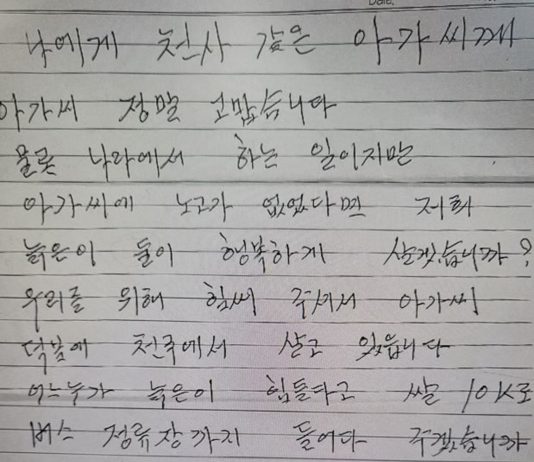 나에게 천사 같은 아가씨께
아가씨 정말 고맙습니다
물론 나라에서 하는 일이지만
아가씨에 노고가 없었다면 저희
늙은이 들이 행복하게 살겠습니까?
우리를 위해 힘써 주셔서 아가씨
덕분에 천국에서 살고 있읍니다
어느누가 늙은이 힘들다고 쌀 10K로
버스 정류장까지 들어다 주겠습니까